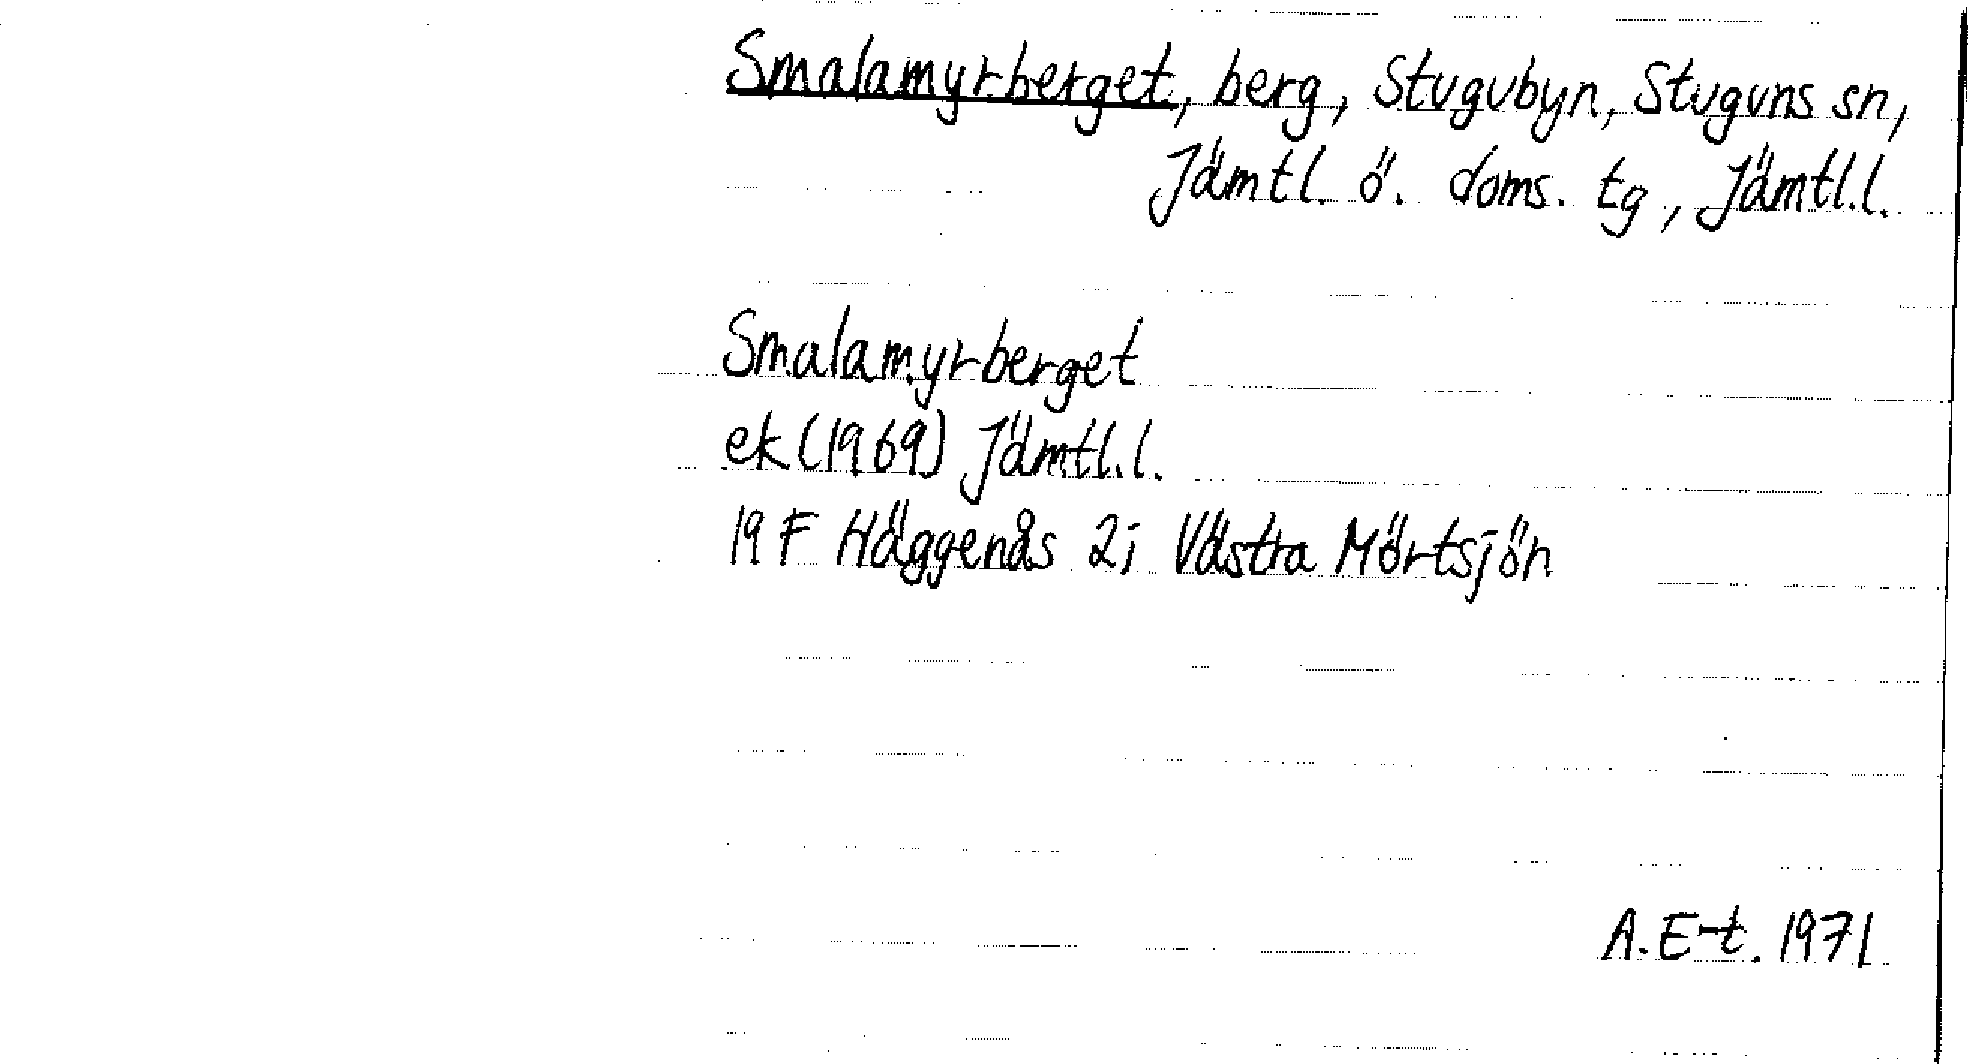 Smalamyrberget, berg, Stugubyn, Stuguns sn,
Jämtl. ö. doms. tg, Jämtl.l.
Smalamyrberget
ek (1969) Jämtl.l.
19 F Häggenås 2j Västra Mörtsjön
A.E-t. 1971